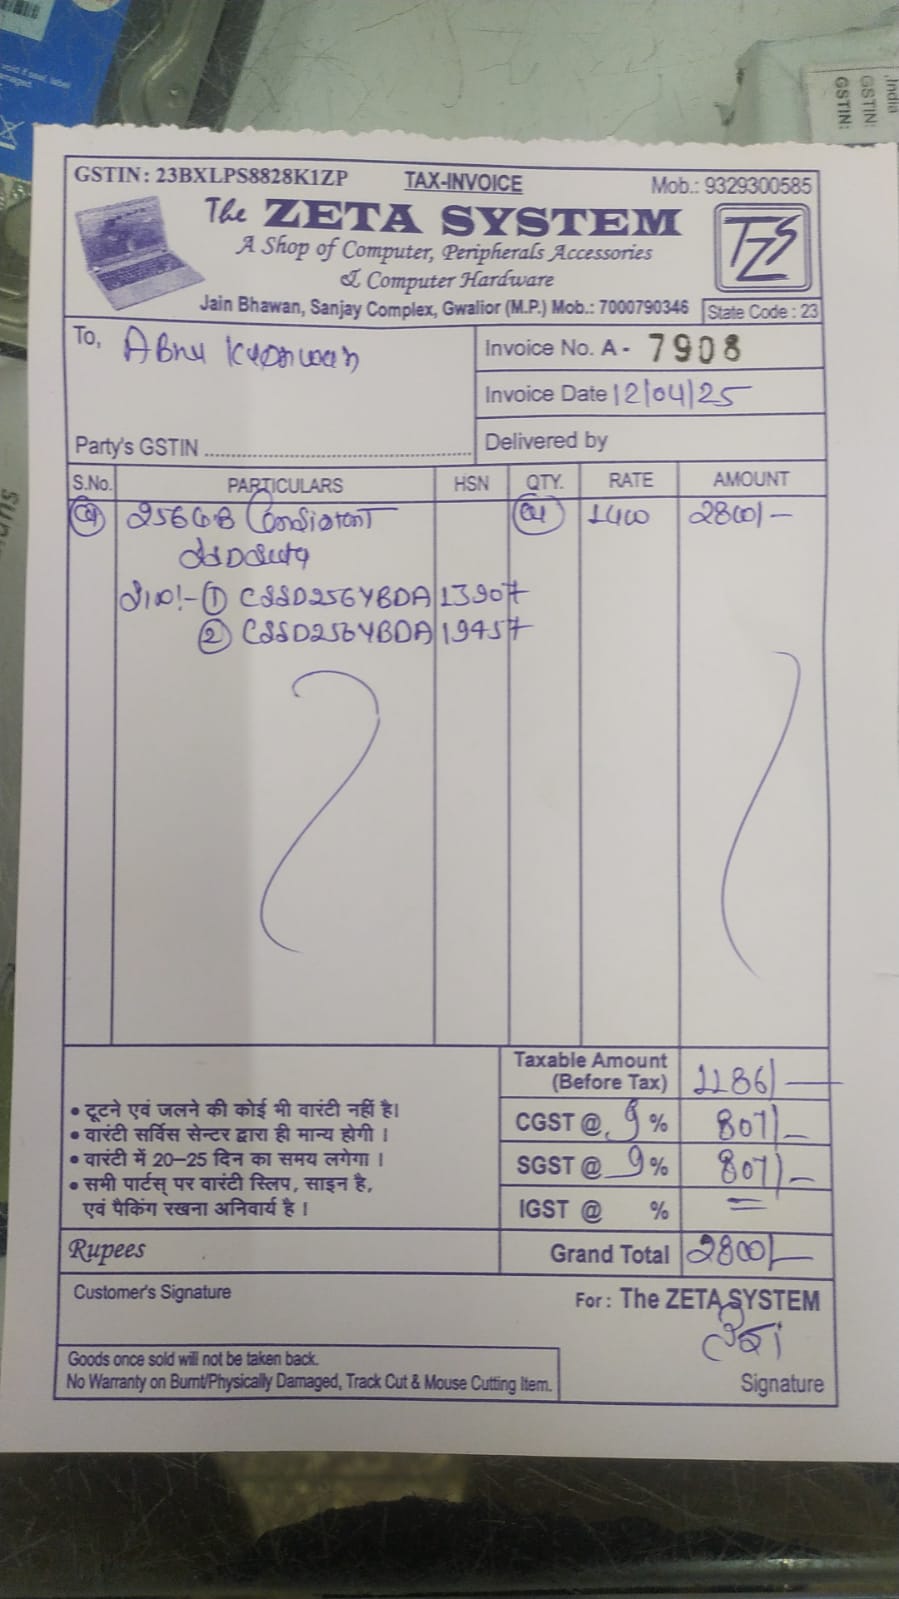 void if peel, label
damaged.
India
GSTIN:
GSTIN:
GSTIN: 23BXLPS8828K1ZP TAX-INVOICE Mob.: 9329300585
The ZETA SYSTEM TZS
A Shop of Computer, Peripherals Accessories
& Computer Hardware
Jain Bhawan, Sanjay Complex, Gwalior (M.P.) Mob.: 7000790346 State Code : 23
To,
Invoice No. A - 7908
Invoice Date 12/04/25
Party's GSTIN
Delivered by
S.No. PARTICULARS HSN QTY. RATE AMOUNT
256GB 1400 2800/-
① CSSD256YBDA13907
② CSSD256YBDA19457
Taxable Amount
(Before Tax)
• टूटने एवं जलने की कोई भी वारंटी नहीं है।
• वारंटी सर्विस सेन्टर द्वारा ही मान्य होगी ।
• वारंटी में 20–25 दिन का समय लगेगा ।
• सभी पार्टस् पर वारंटी स्लिप, साइन है,
एवं पैकिंग रखना अनिवार्य है ।
CGST @ 9 % 807/-
SGST @ 9 % 807/-
IGST @ % =
Rupees Grand Total 2800/-
Customer's Signature
For : The ZETA SYSTEM
Goods once sold will not be taken back.
No Warranty on Burnt/Physically Damaged, Track Cut & Mouse Cutting Item.
Signature